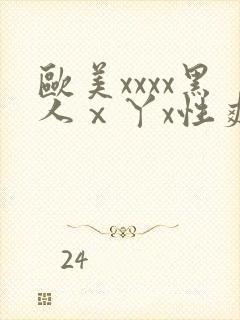 歐美xxxx黑
人ⅹ丫x性爽
24